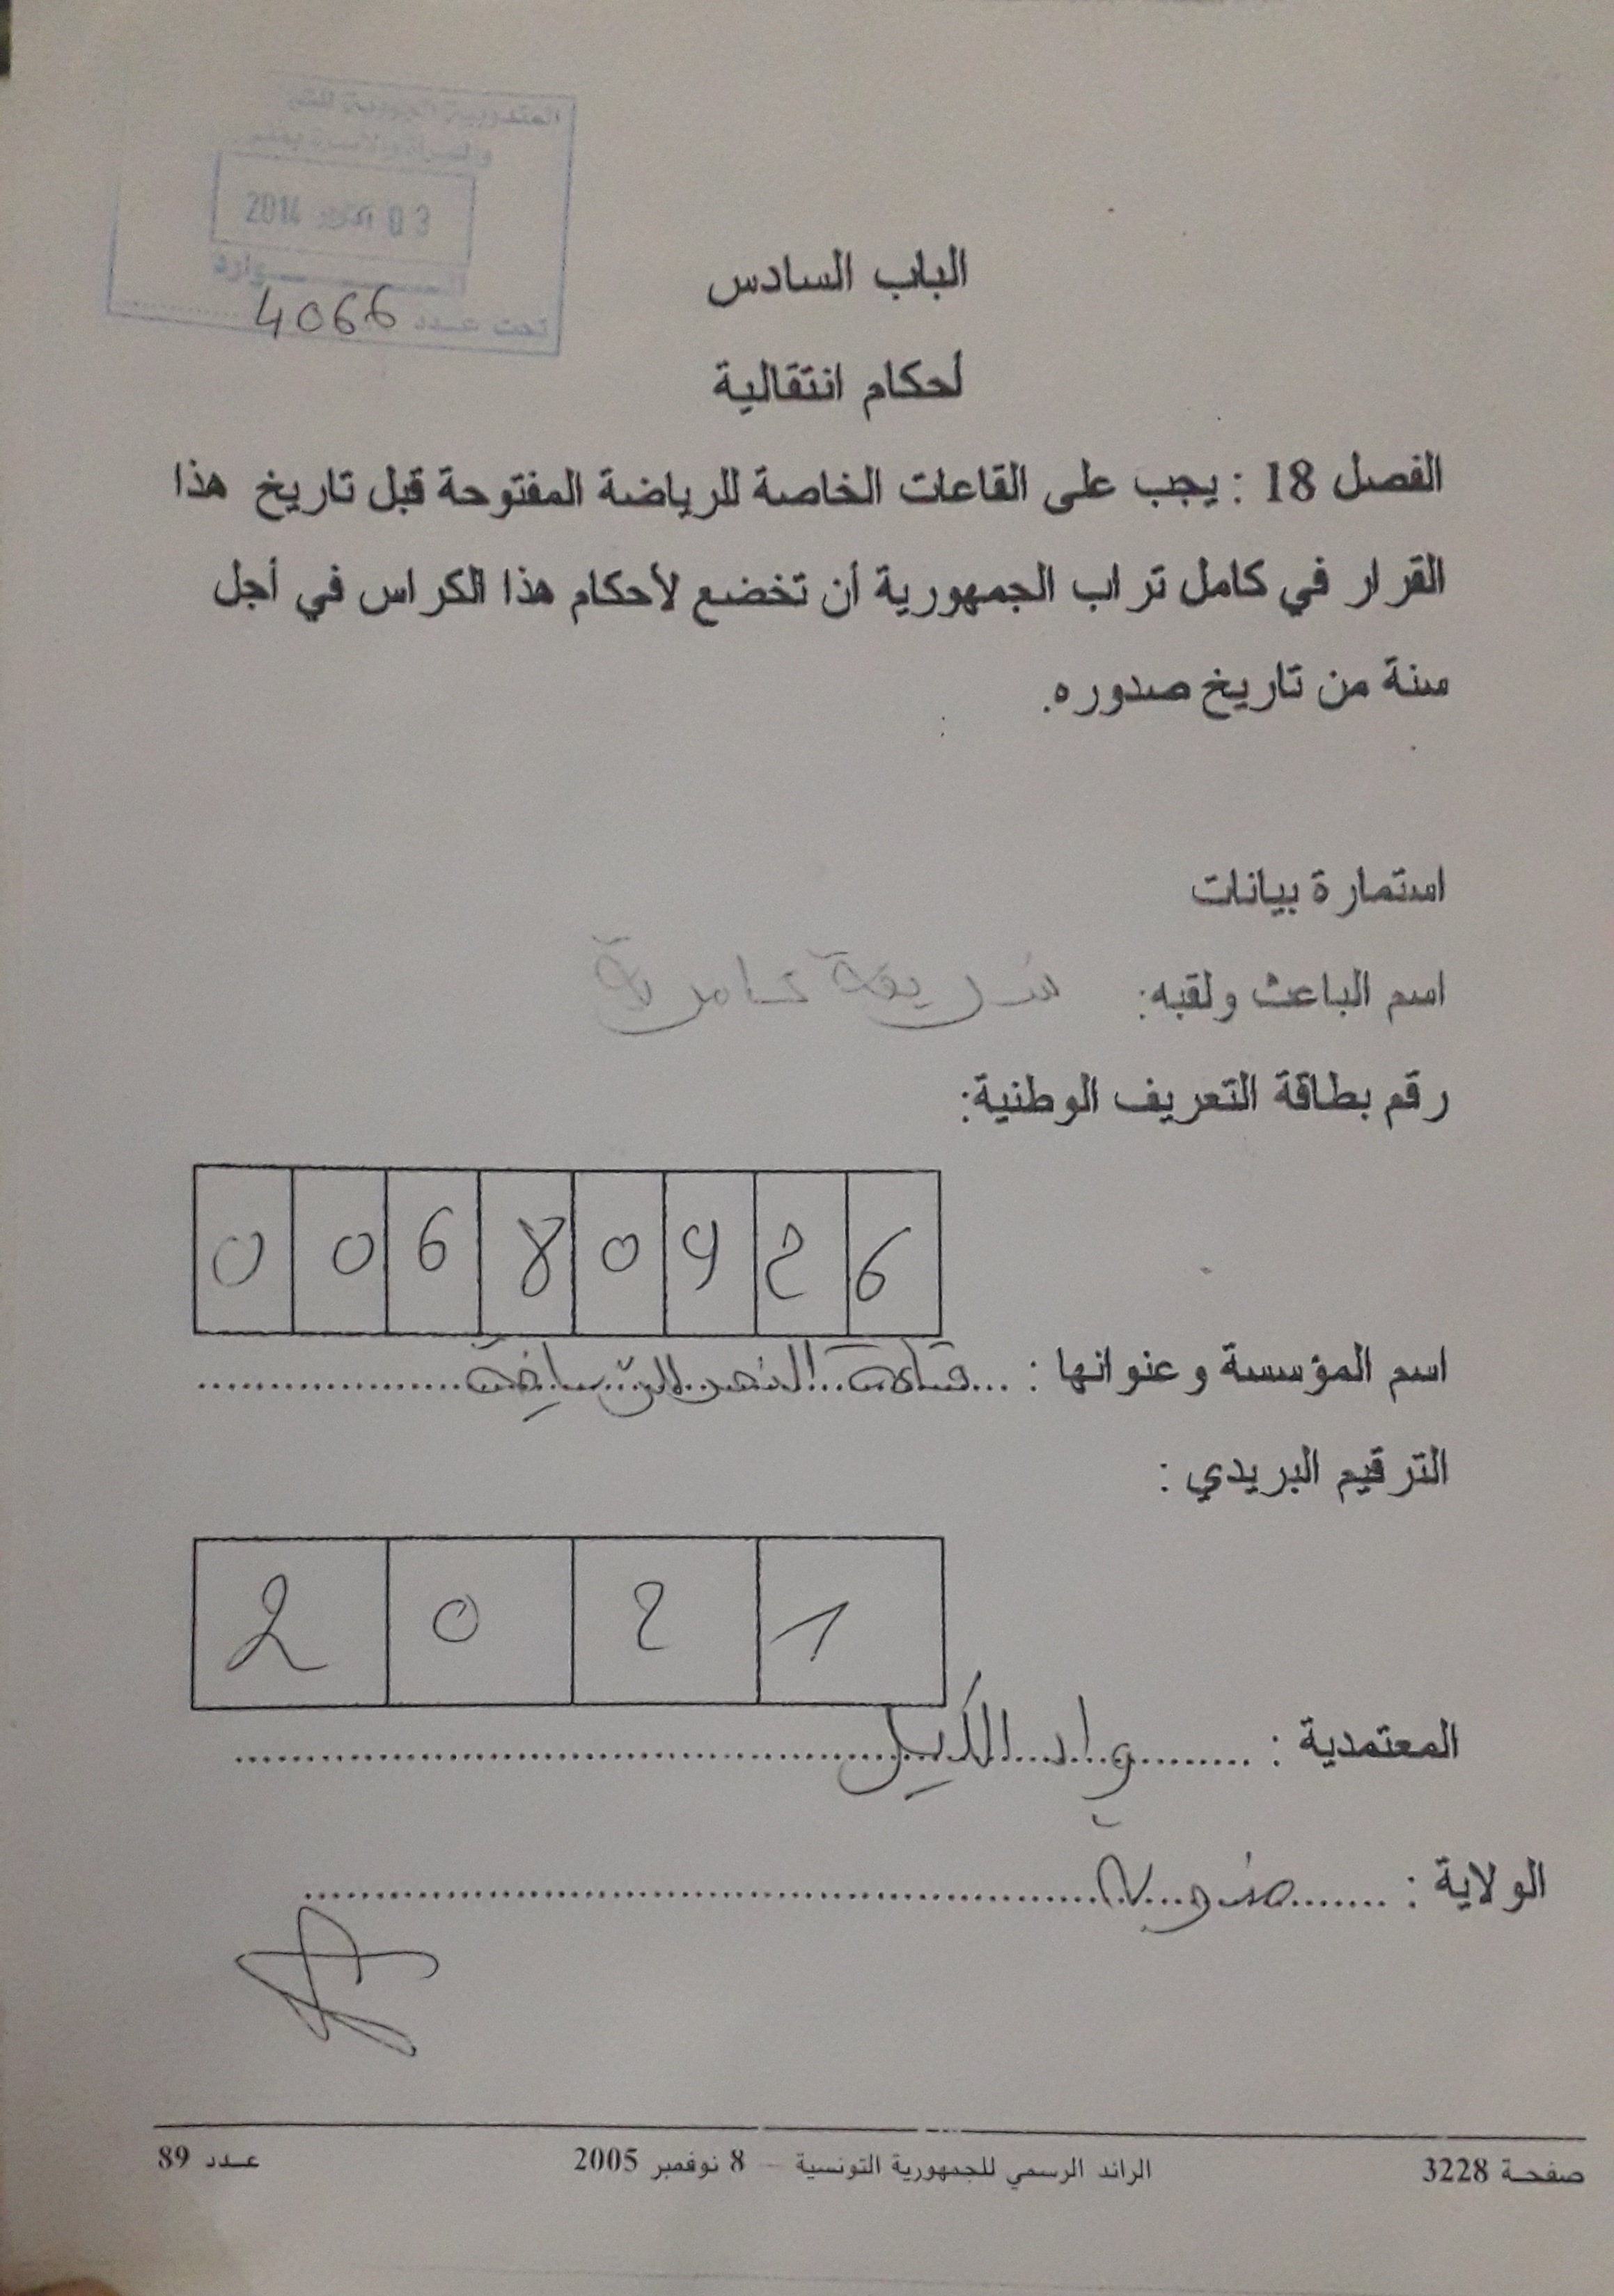 المندوبية الجهوية للشباب
والمرأة والأسرة بمنوبة
03 أكتوبر 2014
الـــــوارد
تحت عـدد 4066
الباب السادس
أحكام انتقالية
الفصل 18 : يجب على القاعات الخاصة للرياضة المفتوحة قبل تاريخ هذا
القرار في كامل تراب الجمهورية أن تخضع لأحكام هذا الكراس في أجل
سنة من تاريخ صدوره.
استمارة بيانات
اسم الباعث ولقبه:
رقم بطاقة التعريف الوطنية:
0 0 6 8 0 9 2 6
اسم المؤسسة وعنوانها : قاعة النصر للرياضة
الترقيم البريدي :
2 0 2 1
المعتمدية : واد الليل
الولاية : منوبة
صفحة 3228 الرائد الرسمي للجمهورية التونسية – 8 نوفمبر 2005 عـدد 89